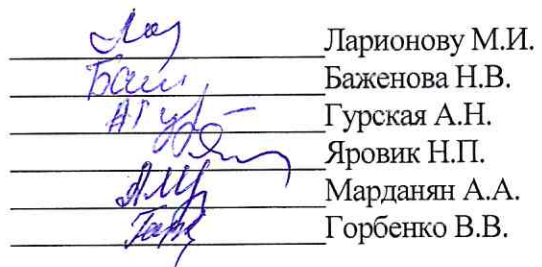 Ларионову М.И.
Баженова Н.В.
Гурская А.Н.
Яровик Н.П.
Марданян А.А.
Горбенко В.В.